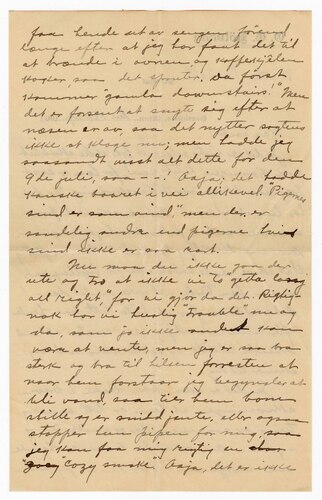 faa hende ut av sengen. Først
længe efter at jeg har faat det til
at brænde i ovnen, og kaffekjelen
koger, saa det spruter. Da først
kommer "gamlin downstairs." Men
det er forsent at angte sig efter at
næsen er av, saa det nytter sogtens
ikke at klage nu; men hadde jeg
saasandt visst alt dette før den
9de juli, saa - - -! Aaja; det hadde
kanske baaret i vei allikevel. "Pigernes
sind er som vind" men der er
sandelig andre end pigerne hvis
sind ikke er saa rart.
Nu maa du ikke gaa der
ute og tro at ikke vi to "getta long
all right," for vi gjør da det. Rigtig-
nok har vi huslig "trouble" nu og
da, som jo ikke andet kan
være at vente, men jeg er saa bra
sterk og bra til hilsen forresten at
naar hem forstaar jeg begynder at
bli vond, saa tier hem bom
stille og er snild jente, eller ogsaa
stopper hem pipen for mig, saa
jeg kan faa mig rigtig en
"cozy smoke". Aaja, det er ikke